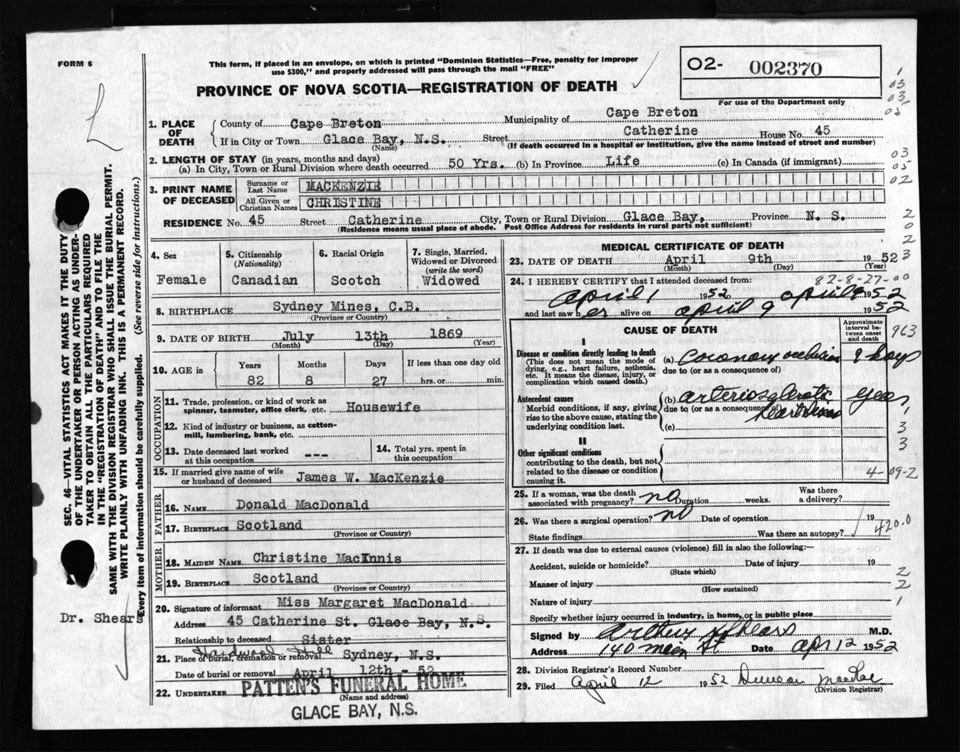 FORM 6
This form, if placed in an envelope, on which is printed "Dominion Statistics—Free, penalty for improper
use $300," and properly addressed will pass through the mail "FREE"
PROVINCE OF NOVA SCOTIA—REGISTRATION OF DEATH
02- 002370
For use of the Department only
1. PLACE OF DEATH
County of Cape Breton Municipality of Cape Breton
If in City or Town Glace Bay, N.S. Street Catherine House No. 45
(Name) (If death occurred in a hospital or institution, give the name instead of street and number)
2. LENGTH OF STAY (in years, months and days)
(a) In City, Town or Rural Division where death occurred 50 Yrs. (b) In Province Life (c) In Canada (if immigrant)
3. PRINT NAME OF DECEASED
Surname or Last Name MACKENZIE
All Given or Christian Names CHRISTINE
RESIDENCE No. 45 Street Catherine City, Town or Rural Division Glace Bay, Province N. S.
(Residence means usual place of abode. Post Office Address for residents in rural parts not sufficient)
4. Sex Female
5. Citizenship (Nationality) Canadian
6. Racial Origin Scotch
7. Single, Married, Widowed or Divorced (write the word) Widowed
8. BIRTHPLACE Sydney Mines, C.B.
(Province or Country)
9. DATE OF BIRTH July 13th 1869
(Month) (Day) (Year)
10. AGE in Years Months Days If less than one day old
82 8 27 hrs. or min.
OCCUPATION
11. Trade, profession, or kind of work as spinner, teamster, office clerk, etc. Housewife
12. Kind of industry or business, as cotton-mill, lumbering, bank, etc.
13. Date deceased last worked at this occupation ---
14. Total yrs. spent in this occupation
15. If married give name of wife or husband of deceased James W. MacKenzie
FATHER
16. NAME Donald MacDonald
17. BIRTHPLACE Scotland
(Province or Country)
MOTHER
18. MAIDEN NAME Christine MacInnis
19. BIRTHPLACE Scotland
(Province or Country)
20. Signature of informant Miss Margaret MacDonald
Address 45 Catherine St. Glace Bay, N.S.
Relationship to deceased Sister
21. Place of burial, cremation or removal Hardwood Hill Sydney, N.S.
Date of burial or removal April 12th - 52
22. UNDERTAKER PATTEN'S FUNERAL HOME
(Name and address)
GLACE BAY, N.S.
MEDICAL CERTIFICATE OF DEATH
23. DATE OF DEATH April 9th 1952
(Month) (Day) (Year)
82-8-27-00
24. I HEREBY CERTIFY that I attended deceased from:
April 1 1952 April 9 1952
and last saw her alive on April 9 1952
CAUSE OF DEATH
Approximate interval between onset and death
I
Disease or condition directly leading to death
(This does not mean the mode of dying, e.g., heart failure, asthenia, etc. It means the disease, injury, or complication which caused death.)
(a) Coronary occlusion 9 days
due to (or as a consequence of)
Antecedent causes
Morbid conditions, if any, giving rise to the above cause, stating the underlying condition last.
(b) arteriosclerotic
due to (or as a consequence of) heart disease
(c)
II
Other significant conditions
contributing to the death, but not related to the disease or condition causing it.
4-09-2
25. If a woman, was the death associated with pregnancy? no Duration weeks. Was there a delivery?
26. Was there a surgical operation? no Date of operation 19
State findings Was there an autopsy?
420.0
27. If death was due to external causes (violence) fill in also the following:-
Accident, suicide or homicide? Date of injury 19
(State which)
Manner of injury
(How sustained)
Nature of injury
Specify whether injury occurred in industry, in home, or in public place
Signed by Arthur Shears M.D.
Address 140 Main St Date Apr 12 1952
28. Division Registrar's Record Number
29. Filed April 12 1952 Duncan
(Division Registrar)
SEC. 46—VITAL STATISTICS ACT MAKES IT THE DUTY
OF THE UNDERTAKER OR PERSON ACTING AS UNDER-
TAKER TO OBTAIN ALL THE PARTICULARS REQUIRED
IN THE "REGISTRATION OF DEATH" AND TO FILE THE
SAME WITH THE DIVISION REGISTRAR WHO SHALL ISSUE THE BURIAL PERMIT.
WRITE PLAINLY WITH UNFADING INK. THIS IS A PERMANENT RECORD.
Every item of information should be carefully supplied. (See reverse side for instructions.)
Dr. Shears
1
03
03
03
05
02
2
0
2
3
963
1
3
3
2
2
1